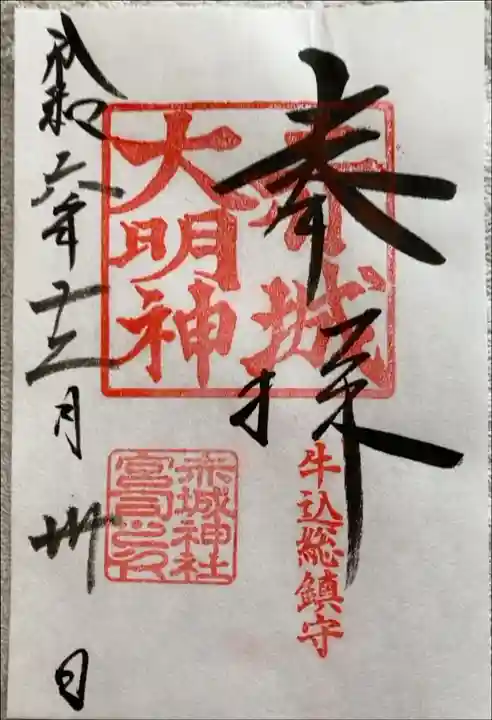 奉拝
赤城
大明神
牛込総鎮守
赤城神社
宮司之印
令和六年十二月卅日